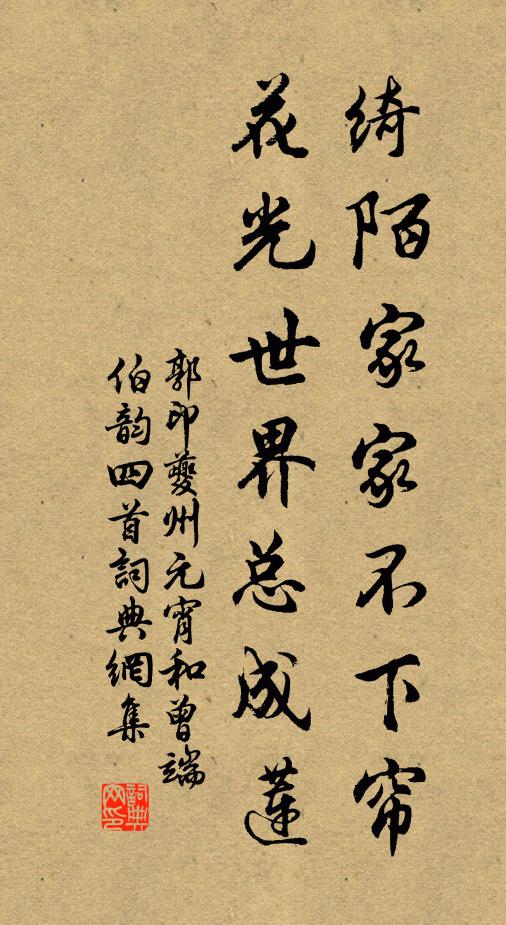 绮陌家家不下帘
花光世界总成莲
郭印夔州元宵和曾端
伯韵四首詞典網集
詞典
网印